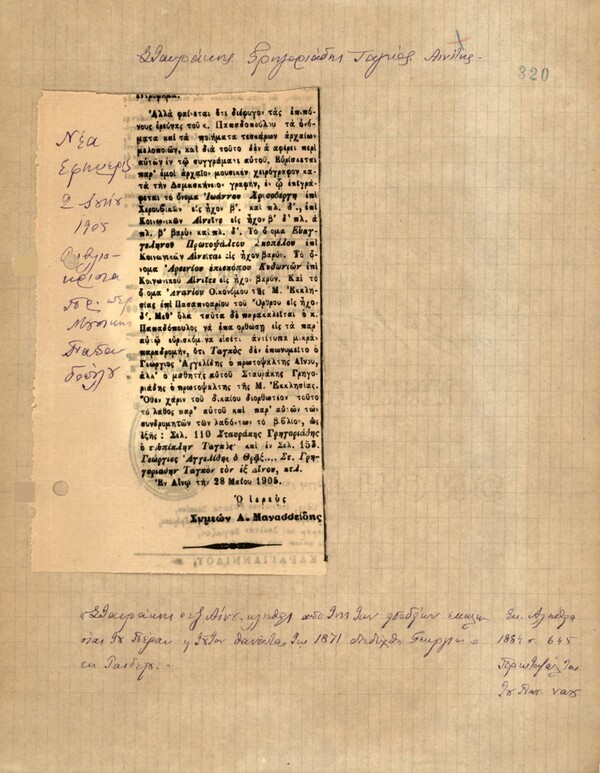 Σταυράκης Γρηγοριάδης Ταγκός Αινίτης.
320
Νέα
Εφημερίς
2 Ιουν.
1905
Βιβλιο-
κρισία
περ
Μουσικης
Παπαδο
πούλου
Ἀλλὰ φαίνεται ὅτι διέφυγον τὰς ἐπιπό-
νους ἐρεύνας τοῦ κ. Παπαδοπούλου τὰ ὀνό-
ματα καὶ τὰ ποιήματα τεσσάρων ἀρχαίων
μελοποιῶν, καὶ διὰ τοῦτο δὲν ἀναφέρει περὶ
αὐτῶν ἐν τῷ συγγράματι αὐτοῦ. Εὑρίσκεται
παρ' ἐμοὶ ἀρχαῖον μουσικὸν χειρόγραφον κα-
τὰ τὴν Δαμασκήνειον γραφήν, ἐν ᾧ ἐπιγρά-
φεται τὸ ὄνομα Ἰωάννου Χρισοβέργη ἐπὶ
Χερουβικῶν εἰς ἦχον β'. καὶ πλ. δ'., ἐπὶ
Κοινωνικῶν Αἰνεῖτε εἰς ἦχον β' δ' πλ. ἀ
πλ. β' βαρὺν καὶ πλ. δ'. Τὸ ὄνομα Εὐαγ-
γεληνοῦ Πρωτοψάλτου Σκοπέλου ἐπὶ
Κοινωνικῶν Αἰνεῖται εἰς ἦχον βαρύν. Τὸ ὄ-
νομα Ἀρσενίου ἐπισκόπου Κυδωνιῶν ἐπὶ
Κοινωνικοῦ Αἰνεῖτε εἰς ἦχον βαρύν. Καὶ τὸ
ὄνομα Ἀνανίου Οἰκονόμου τῆς Μ. Ἐκκλη-
σίας ἐπὶ Πασαπνοαρίου τοῦ Ὄρθρου εἰς ἦχον
δ'. Μεθ' ὅλα ταῦτα δὲ παρακαλεῖται ὁ κ.
Παπαδόπουλος νὰ ἐπανορθώσῃ εἰς τὰ παρ'
αὐτῷ εὑρισκόμενα εἰσέτι ἀντίτυπα μικρὰν
παραδρομήν, ὅτι Ταγκὸς δὲν ἐπωνομεῖτο ὁ
Γεώργιος Ἀγγελίδης ὁ πρωτοψάλτης Αἴνου,
ἀλλ' ὁ μαθητὴς αὐτοῦ Σταυράκης Γρηγο-
ριάδης ὁ πρωτοψάλτης τῆς Μ. Ἐκκλησίας.
Ὅθεν χάριν τοῦ δικαίου διορθωτέον τοῦτο
τὸ λάθος παρ' αὐτοῦ καὶ παρ' αὐτῶν τῶν
συνδρομητῶν τῶν λαβόντων τὸ βιβλίον, ὡς
ἑξῆς : Σελ. 110 Σταυράκης Γρηγοριάδης
ὁ τοὐπίκλην Ταγκὸς καὶ ἐν Σελ. 153.
Γεώργιος Ἀγγελίδης ὁ Θρᾷξ.... Στ. Γρη-
γοριάδην Ταγκὸν τὸν ἐξ Αἴνου, κτλ.
Ἐν Αἴνῳ τὴν 28 Μαΐου 1905.
Ὁ Ἱερεὺς
Συμεὼν Α. Μανασσείδης
ΚΑΡΑΓΙΑΝΝΙΔΟΥ,
Σταυράκης ο εξ Αίνου, κληθείς από της των
του Πέραν θανόντα τω 1871 διεδέχθη Γεώργιος ο
εκ Ραιδεστ. -
Εκ. Αλήθεια
1884 σ. 645
Πρωτοψάλται
του Πατ. ναού